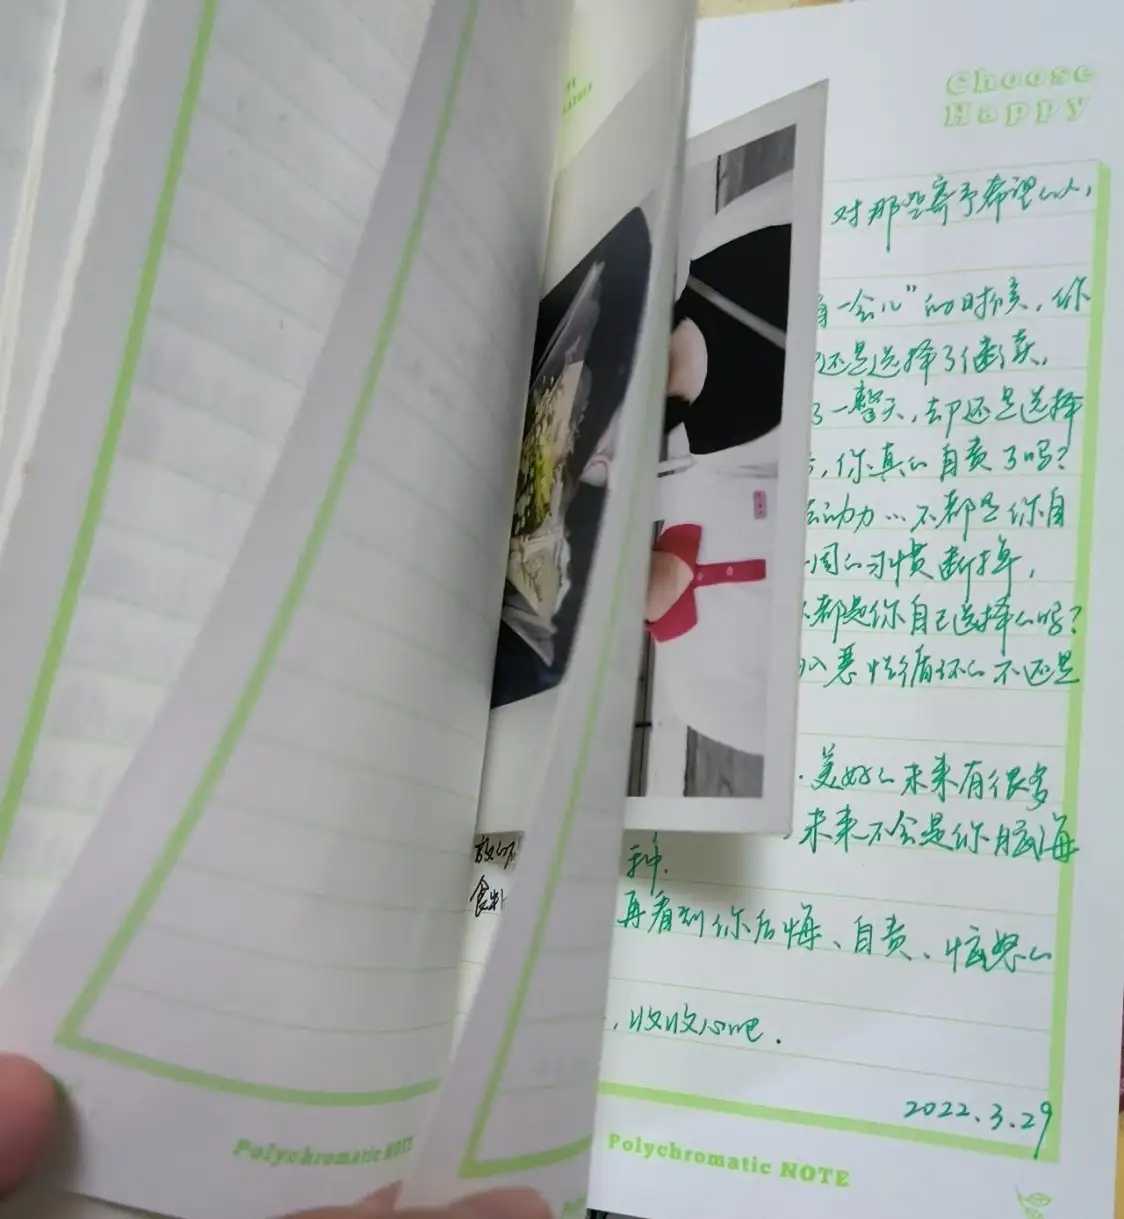 Choose
Happy
对那些寄予希望的人,
一会儿”的时候,你
还是选择了继续,
了一整天,却还是选择
,你真的自责了吗?
动力…不都是你自
周的习惯断掉,
都是你自己选择的吗?
入恶性循环的不还是
美好的未来有很多
未来不会是你脑海
种.
再看到你后悔、自责、恼怒的
,收收心吧.
2022.3.29
Polychromatic NOTE
Polychromatic NOTE